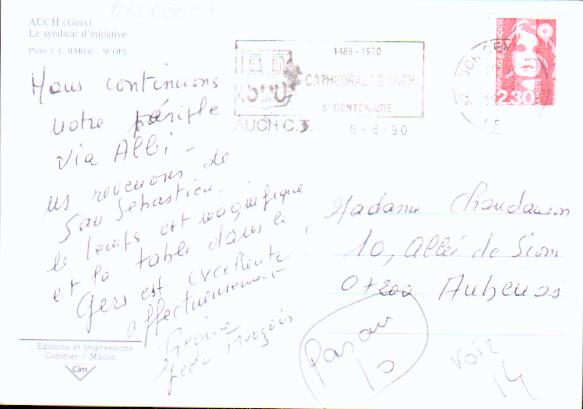 AUCH (Gers)
Le syndicat d'initiative
Photo J.-L. BARDE - SCOPE
Nous continuons
notre périple
via Albi -
ns revenons de
San Sébastien.
le temps est magnifique
et la table dans le
Gers est excellente
affectueusement
Régine
Jean François
Editions et Impressions
Combier / Mâcon
Cim
1489-1990
CATHEDRALE D'AUCH
5e CENTENAIRE
AUCH C.T.
8-8-90
2,30
Madame Chaudanson
10, Allée de Sion
07200 Aubenas
Pas au
10
voir
14